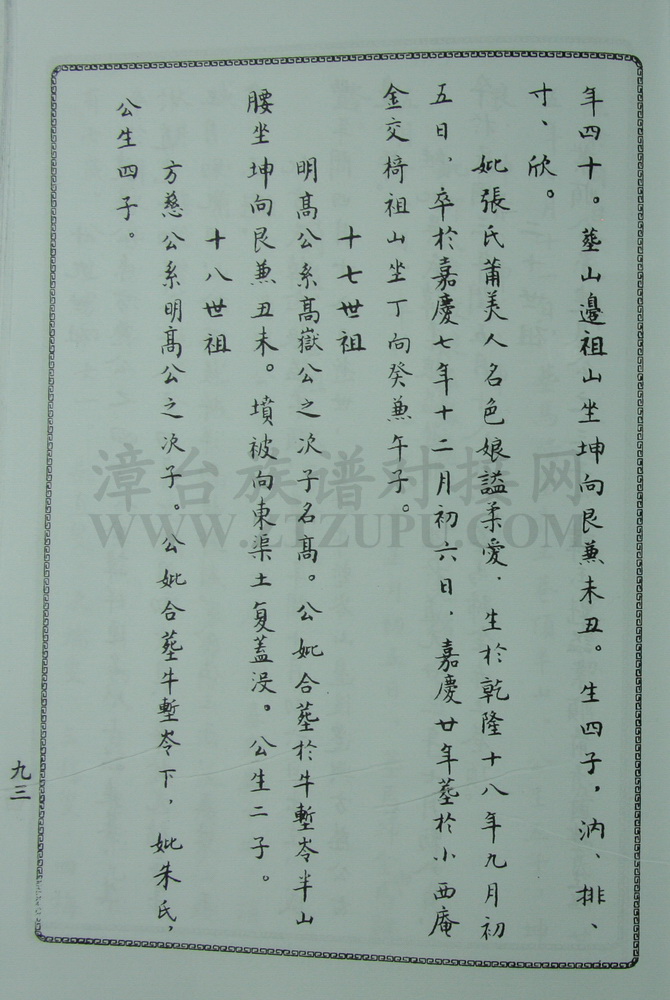 年四十。塟山邊祖山坐坤向艮兼未丑。生四子，汭、排、
寸、欣。
妣張氏莆美人名色娘謚柔愛．生於乾隆十八年九月初
五日，卒於嘉慶七年十二月初六日，嘉慶廿年塟於小西庵
金交椅祖山坐丁向癸兼午子。
十七世祖
明高公系高嶽公之次子名高。公妣合塟於牛塹岺半山
腰坐坤向艮兼丑未。墳被向東渠土复蓋浸。公生二子。
十八世祖
方慈公系明高公之次子。公妣合塟牛塹岺下，妣朱氏，
公生四子。
九三
漳台族谱对接网
WWW.ZTZUPU.COM